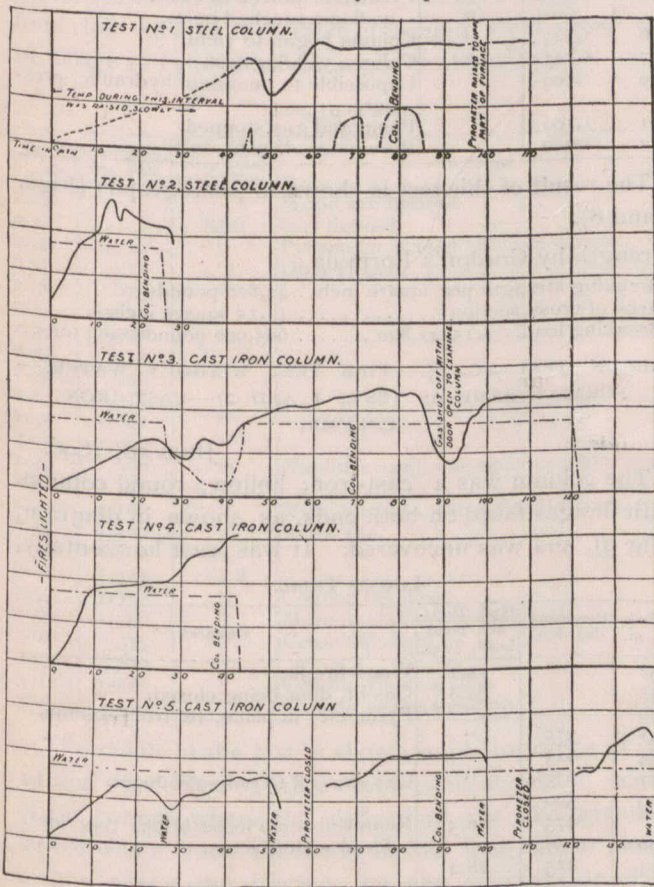 TEST Nº1 STEEL COLUMN.
TEMP. DURING THIS INTERVAL
WAS RAISED SLOWLY
COL. BENDING
PYROMETER RAISED TO UPPER
PART OF FURNACE
TIME IN MIN
10 20 30 40 50 60 70 80 90 100 110
TEST Nº2, STEEL COLUMN.
WATER
COL BENDING
0 10 20 30
TEST Nº3. CAST IRON COLUMN.
WATER
COL BENDING
GAS SHUT OFF WITH
DOOR OPEN TO EXAMINE
COLUMN
0 10 20 30 40 50 60 70 80 90 100 110 120
FIRES LIGHTED
TEST Nº4. CAST IRON COLUMN.
WATER
COL BENDING
0 10 20 30 40
TEST Nº5. CAST IRON COLUMN.
WATER
WATER
WATER
PYROMETER CLOSED
COL BENDING
WATER
PYROMETER
CLOSED
WATER
0 10 20 30 40 50 60 70 80 90 100 110 120 130